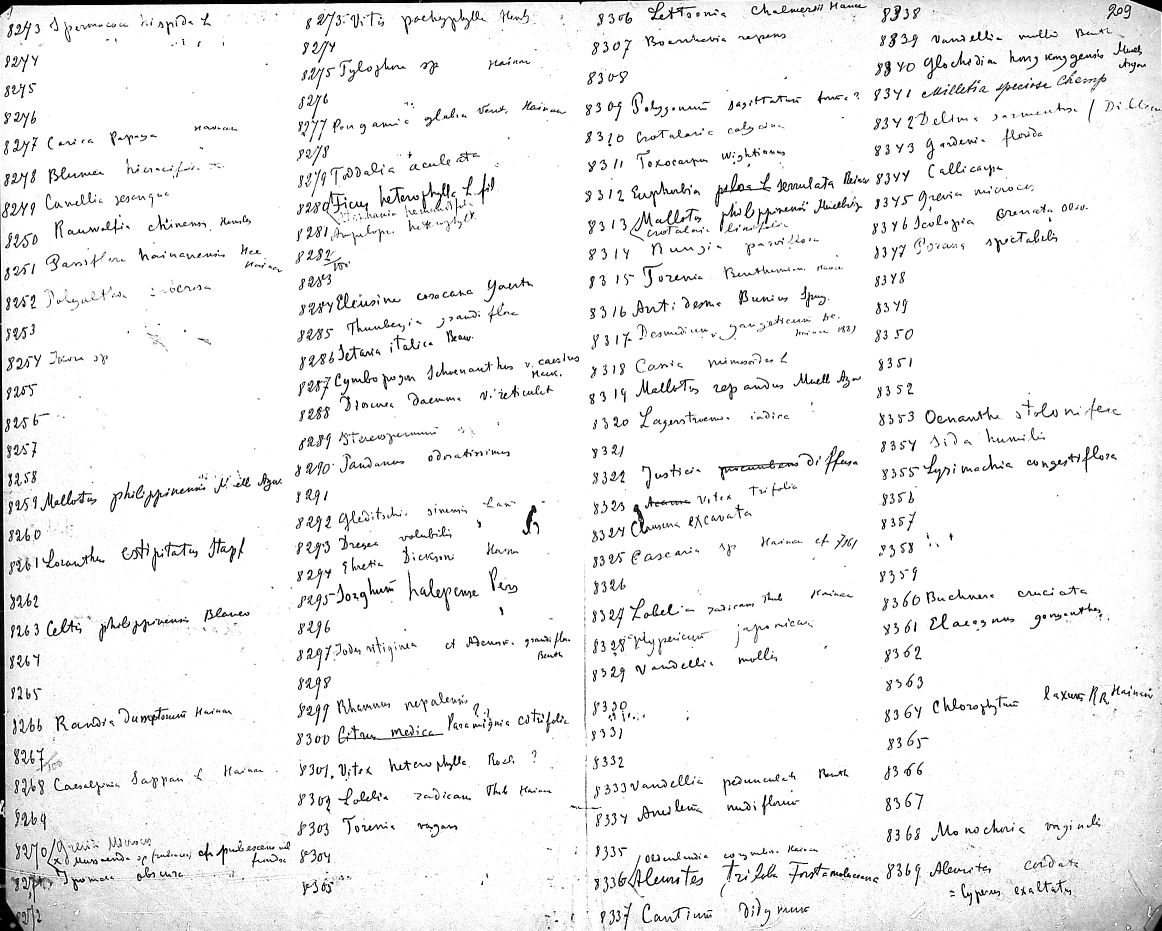 209
8243 Spermacoce hispida L
8244
8245
8246
8247 Carica Papaya Hainan
8248 Blumea
8249 Camellia sesanqua
8250 Rauwolfia chinensis Hemsley
8251 Passiflora hainanensis Hce
Hainan
8252 Polyalthia
8253
8254 Ixora sp
8255
8256
8257
8258
8259 Mallotus philippinensis Müll Arg.
8260
8261 Loranthus estipitatus Stapf
8262
8263 Celtis philippinensis Blanco
8264
8265
8266 Randia dumetorum Hainan
8267
8268 Caesalpinia Sappan L Hainan
8269
8270 Grewia
Mussaenda sp
8271 Ipomoea obscura
8272
8273 Vitis pachyphylla Hemsl
8274
8275 Tylophora sp Hainan
8276
8277 Pongamia glabra Vent. Hainan
8278
8279 Toddalia aculeata
8280 Ficus heterophylla L fil
8281 Ampelops. heterophylla
8282
8283
8284 Eleusine coracana Gaertn
8285 Thunbergia grandiflora
8286 Setaria italica Beauv.
8287 Cymbopogon Schoenanthus v. caesius
Hack.
8288 Dioscorea daemona v. reticulata
8289 Stereospermum
8290 Pandanus odoratissimus
8291
8292 Gleditschia sinensis Lam
8293 Dregea volubilis
8294 Ehretia Dicksoni Hance
8295 Sorghum halepense Pers
8296
8297 Iodes vitiginea et Adenosma grandiflora
Benth
8298
8299 Rhamnus nepalensis ?
8300 Citrus medica Paramignia citrifolia
8301 Vitex heterophylla Roxb. ?
8302 Lobelia radicans Thb Hainan
8303 Torenia vagans
8304
8305
8306 Lettsonia Chalmersii Hance
8307 Boerrhavia repens
8308
8309 Polygonum sagittatum
8310 Crotalaria calycina
8311 Toxocarpus Wightianus
8312 Euphorbia serrulata Reinw
8313 Mallotus philippinensis Muell Arg
Crotalaria linifolia
8314 Rungia parviflora
8315 Torenia Benthamiana Hance
8316 Antidesma Bunius Spreng.
8317 Desmodium gangeticum DC.
Hainan 1889
8318 Cassia mimosoides L
8319 Mallotus repandus Muell Arg
8320 Lagerstroemia indica
8321
8322 Justicia procumbens diffusa
8323 Vitex trifolia
8324 Clausena excavata
8325 Casearia sp Hainan cf 7761
8326
8327 Lobelia radicans Thb Hainan
8328 Hypericum japonicum
8329 Vandellia mollis
8330
8331
8332
8333 Vandellia pedunculata Benth
8334 Aneilema nudiflorum
8335
Oldenlandia corymbosa Hainan
8336 Aleurites triloba Forst = moluccana
8337 Cantium didymum
8338
8339 Vandellia mollis Benth
8340 Glochidion hongkongensis Muell
Argov
8341 Milletia speciosa Champ
8342 Delima sarmentosa
8343 Gardenia florida
8344 Callicarpa
8345 Grewia microcos
8346 Scolopia crenata Oliv.
8347 Porana spectabilis
8348
8349
8350
8351
8352
8353 Oenanthe stolonifera
8354 Sida humilis
8355 Lysimachia congestiflora
8356
8357
8358
8359
8360 Buchnera cruciata
8361 Elaeagnus gonyanthes
8362
8363
8364 Chlorophytum laxum R Br Hainan
8365
8366
8367
8368 Monochoria vaginalis
8369 Aleurites cordata
= Cyperus exaltatus